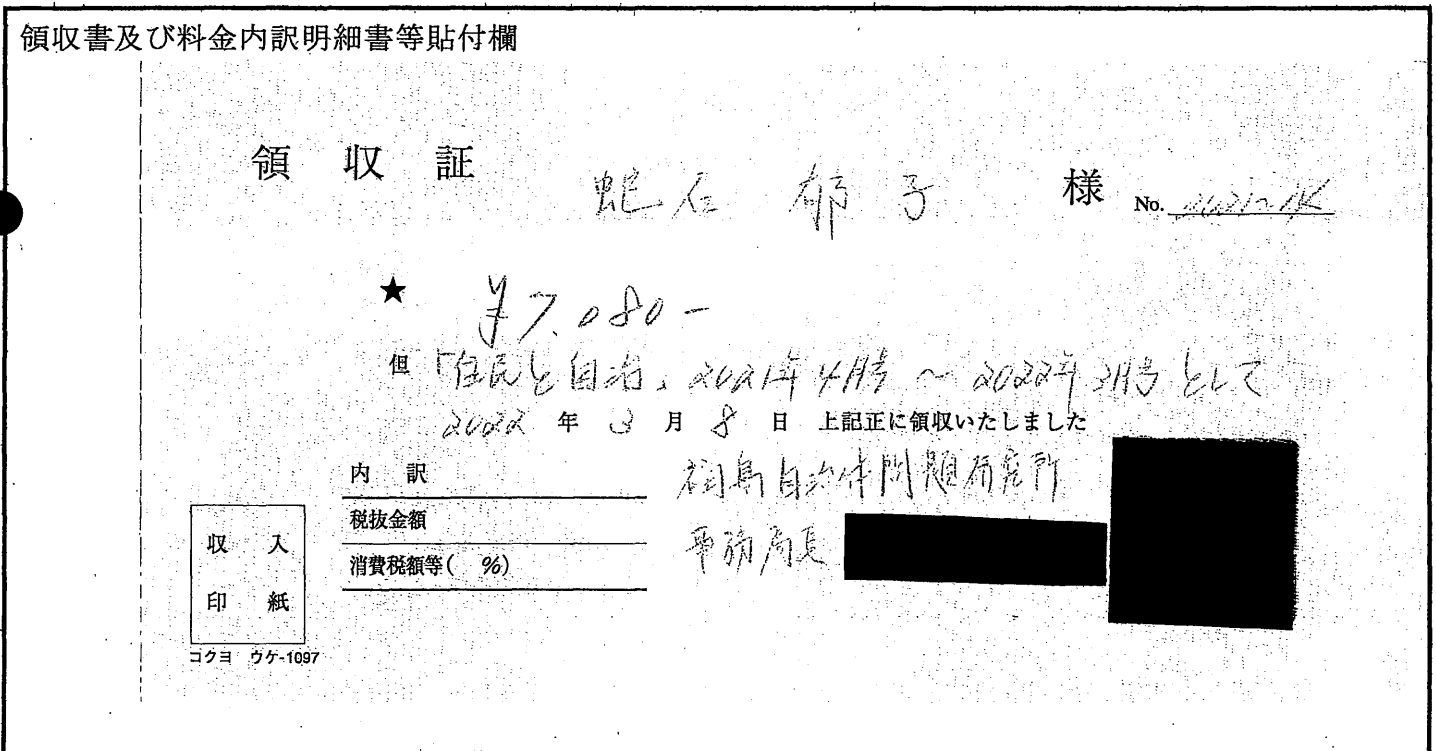 領収書及び料金内訳明細書等貼付欄
領 収 証 蛇石 郁子 様 No.
★ ¥7,080-
但 「住民と自治」2021年4月号 ～ 2022年3月号 として
2022 年 3 月 8 日 上記正に領収いたしました
内 訳 福島自治体問題研究所
税抜金額
事務局長
消費税額等( %)
収 入
印 紙
コクヨ ウケ-1097